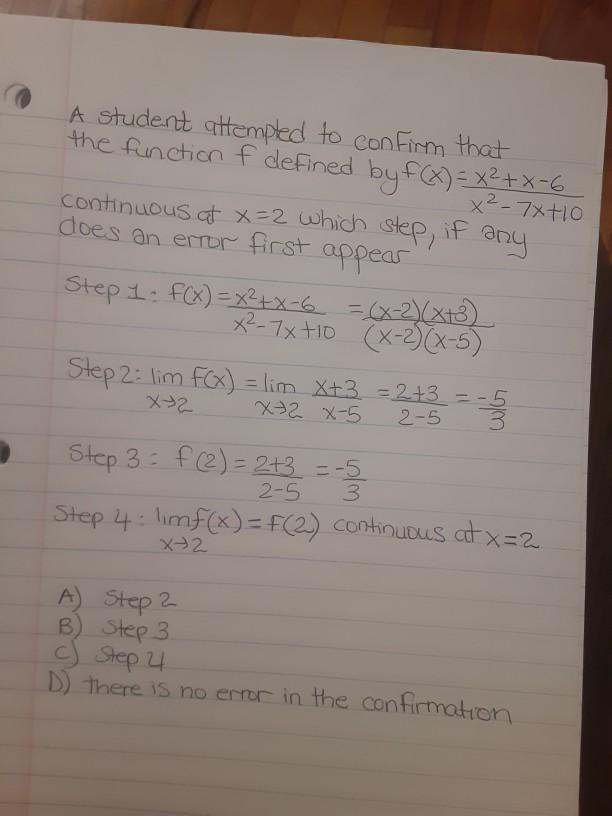 A student attempted to confirm that
the function f defined by f(x) = x²+x-6
x²-7x+10
continuous at x=2 which step, if any
does an error first appear
Step 1: f(x) = x²+x-6 = (x-2)(x+3)
x²-7x+10 (x-2)(x-5)
Step 2: lim f(x) = lim x+3 = 2+3 = -5
x→2 x→2 x-5 2-5 3
Step 3: f(2) = 2+3 = -5
2-5 3
Step 4: lim f(x) = f(2) continuous at x=2
x→2
A) Step 2
B) Step 3
C) Step 4
D) there is no error in the confirmation